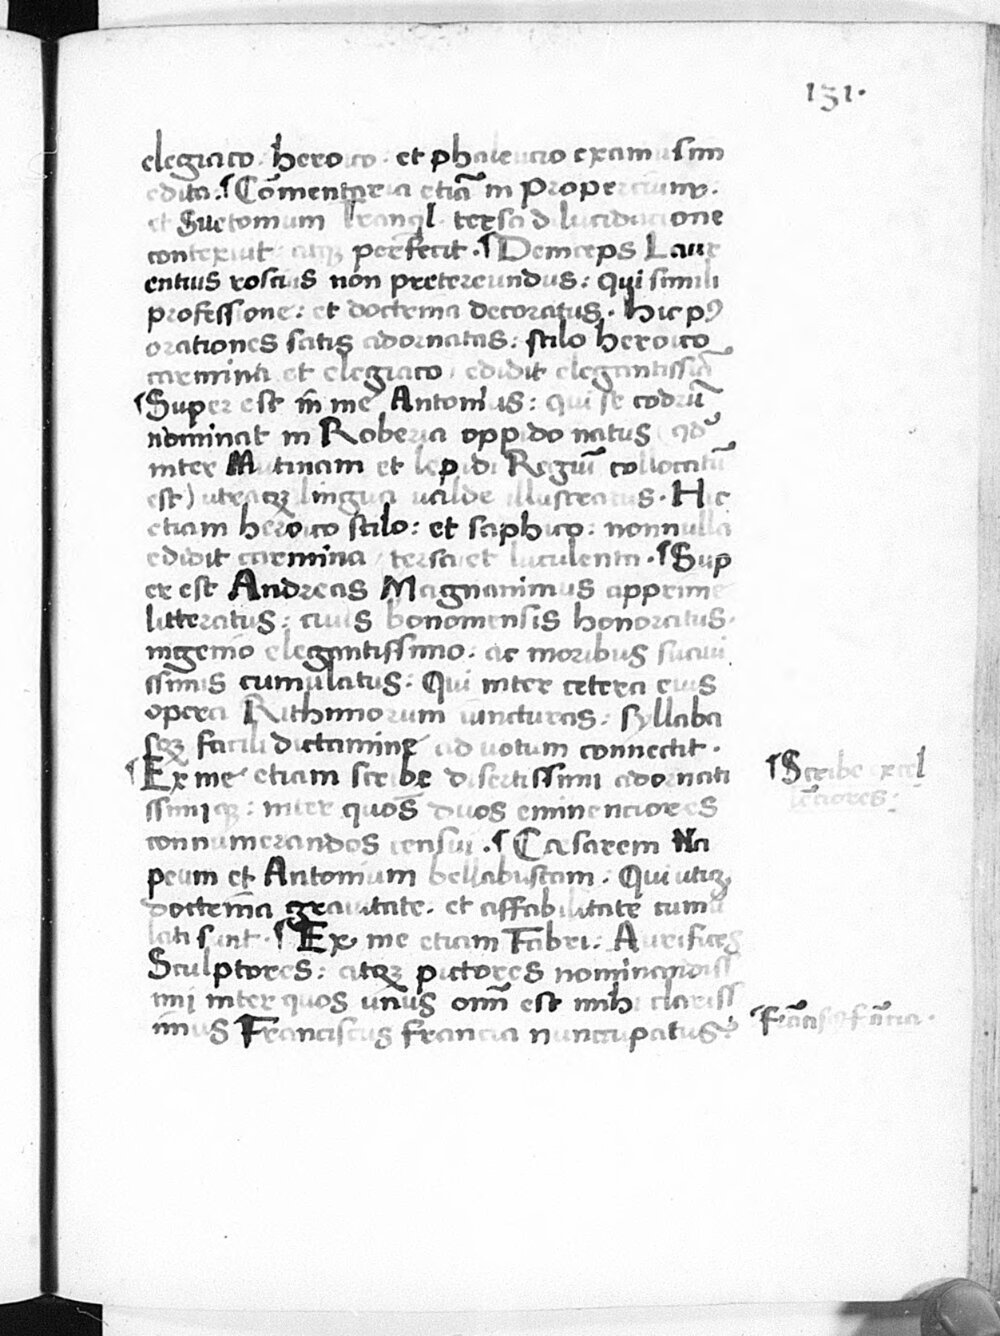 131.
elegiaco. heroico. et phaleucio examussim
edita. ¶ Cōmentaria etiā in Propercium.
et Suetonium Tranql. tersa dilucidacione
contexuit: atqꝫ perfecit. ¶ Deinceps Laur
entius roscius non pretereundus: Qui simili
professione: et doctrina decoratus. hic pꝰ
orationes satis adornatas: stilo heroico
carmina et elegiaco edidit elegantissia
¶ Super est in me Antonius: qui se codrū
nominat in Roberia oppido natus (qd
inter Mutinam et lepidi Regiū collocatū
est) utraqꝫ lingua ualde illustratus. Hic
etiam heroico stilo: et saphico: nonnulla
edidit carmina tersa et luculenta. ¶ Sup
er est Andreas Magnanimus apprime
litteratus: ciuis bononiensis honoratus.
ingenio elegantissimo: ac moribus suaui
ssimis cumulatus: Qui inter cetera eius
opera Rithmorum iuncturas: syllaba
sqꝫ facili dictamine ad uotum connectit.
¶ Ex me etiam scribe disertissimi adornati
ssimiqꝫ: inter quos duos eminenciores
connumerandos censui. ¶ Cæsarem Na
peum et Antonium bellabustam. Qui utiqꝫ
doctrina grauitate. et affabilitate cumu
lati sunt. ¶ Ex me etiam Fabri: Aurifices
Sculptores: atqꝫ pictores nominandiss
imi inter quos unus omī est mihi clariss
imus Franciscus francia nuncupatus:
¶ Scribe excel
lētiores:
¶ Frācisꝰ frācia.